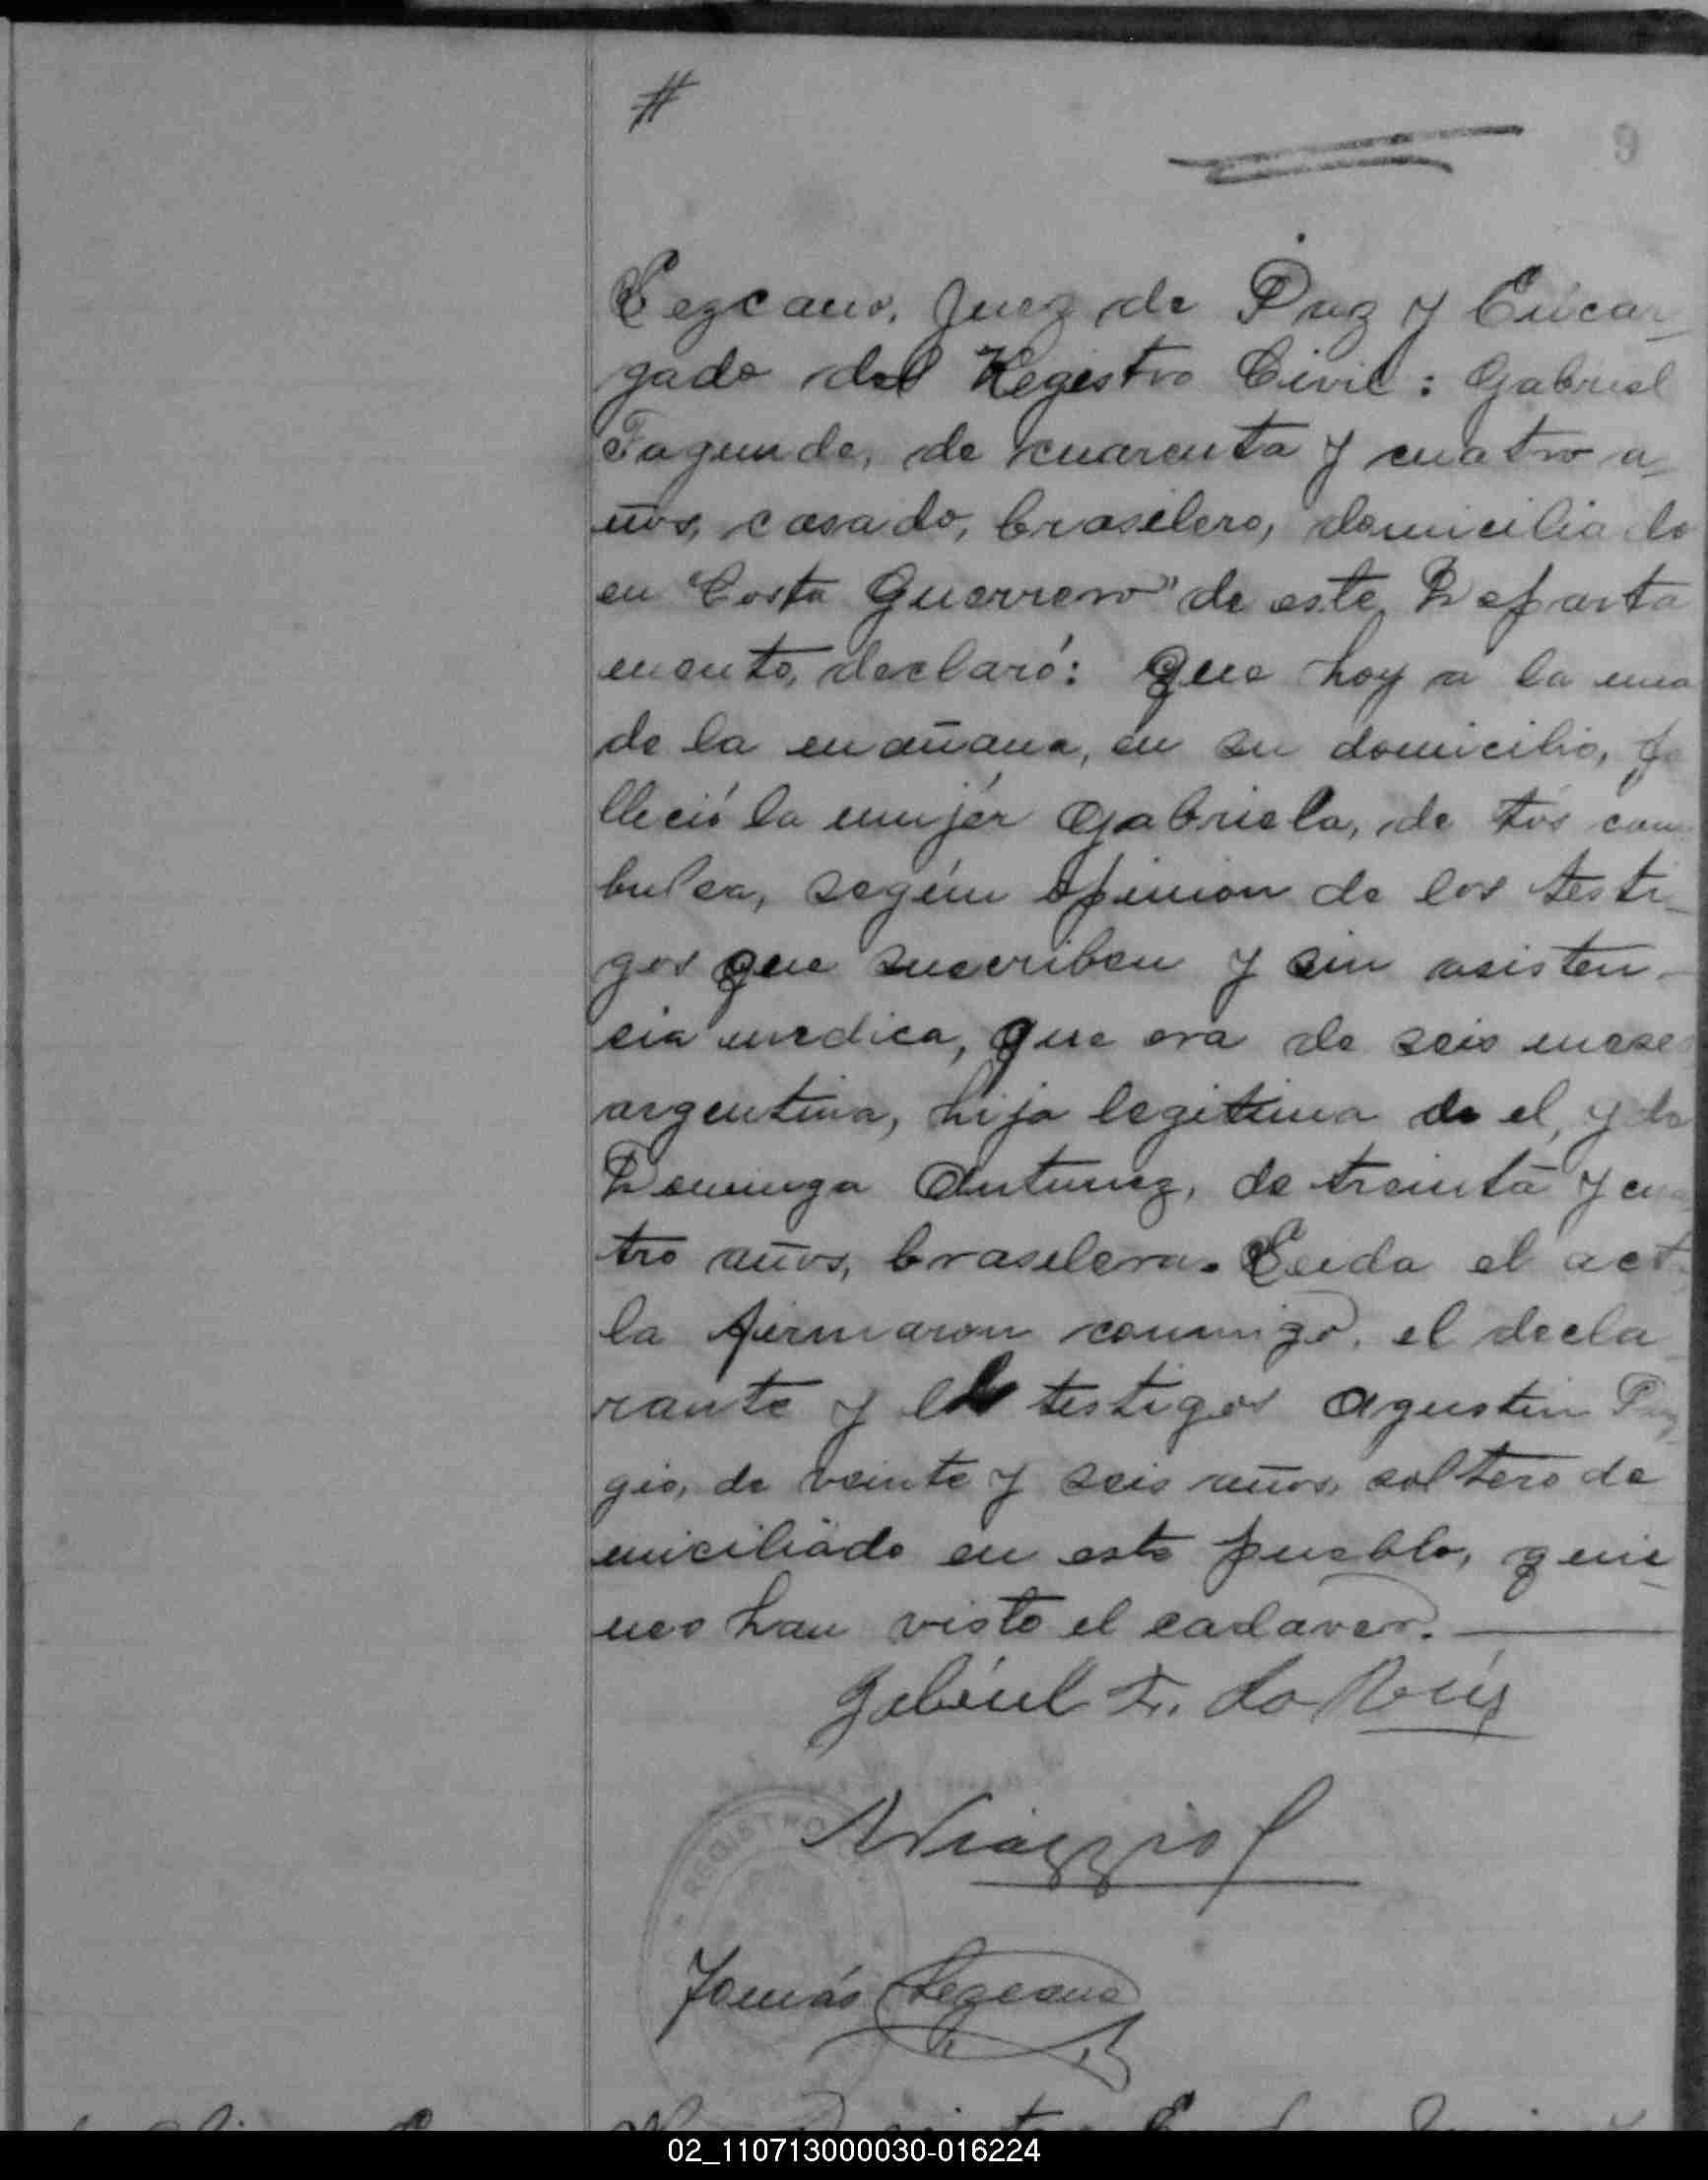 #
9
Lezcano, Juez de Paz y Encar-
gado del Registro Civil: Gabriel
Fagunde, de cuarenta y cuatro a-
ños, casado, brasilero, domiciliado
en "Costa Guerrero" de este Departa
mento, declaró: Que hoy a la una
de la mañana, en su domicilio, fa
lleció la mujér Gabriela, de tós con
bulsa, según opinion de los testi-
gos que suscriben y sin asisten-
cia medica, que era de seis meses
argentina, hija legitima de el, y de
Dominga Antunez, de treinta y cua
tro años, brasilera. Leida el acta
la firmaron conmigo, el decla
rante y los testigos Agustin
gio, de veinte y seis años, soltero do
miciliado en este pueblo, quie-
nes han visto el cadaver.
Gabriel F. do Reis
Tomás Lezcano
REGISTRO
02_110713000030-016224